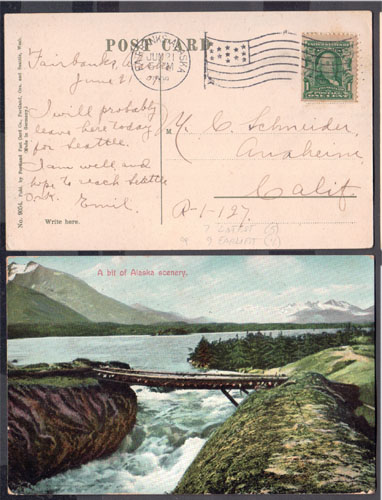 POST CARD
FAIRBANKS, ALASKA
JUN 21
PM
Fairbanks, Alaska
June 21
I will probably
leave here today
for Seattle.
I am well and
hope to reach Seattle
O.K.
Emil.
Write here.
No. 9004. Publ. by Portland Post Card Co., Portland, Ore. and Seattle, Wash.
(Made in Germany.)
M
Y. C. Schneider
Anaheim
Calif
R-1-127.
7 LATEST (3)
9 EARLIEST (4)
A bit of Alaska scenery.